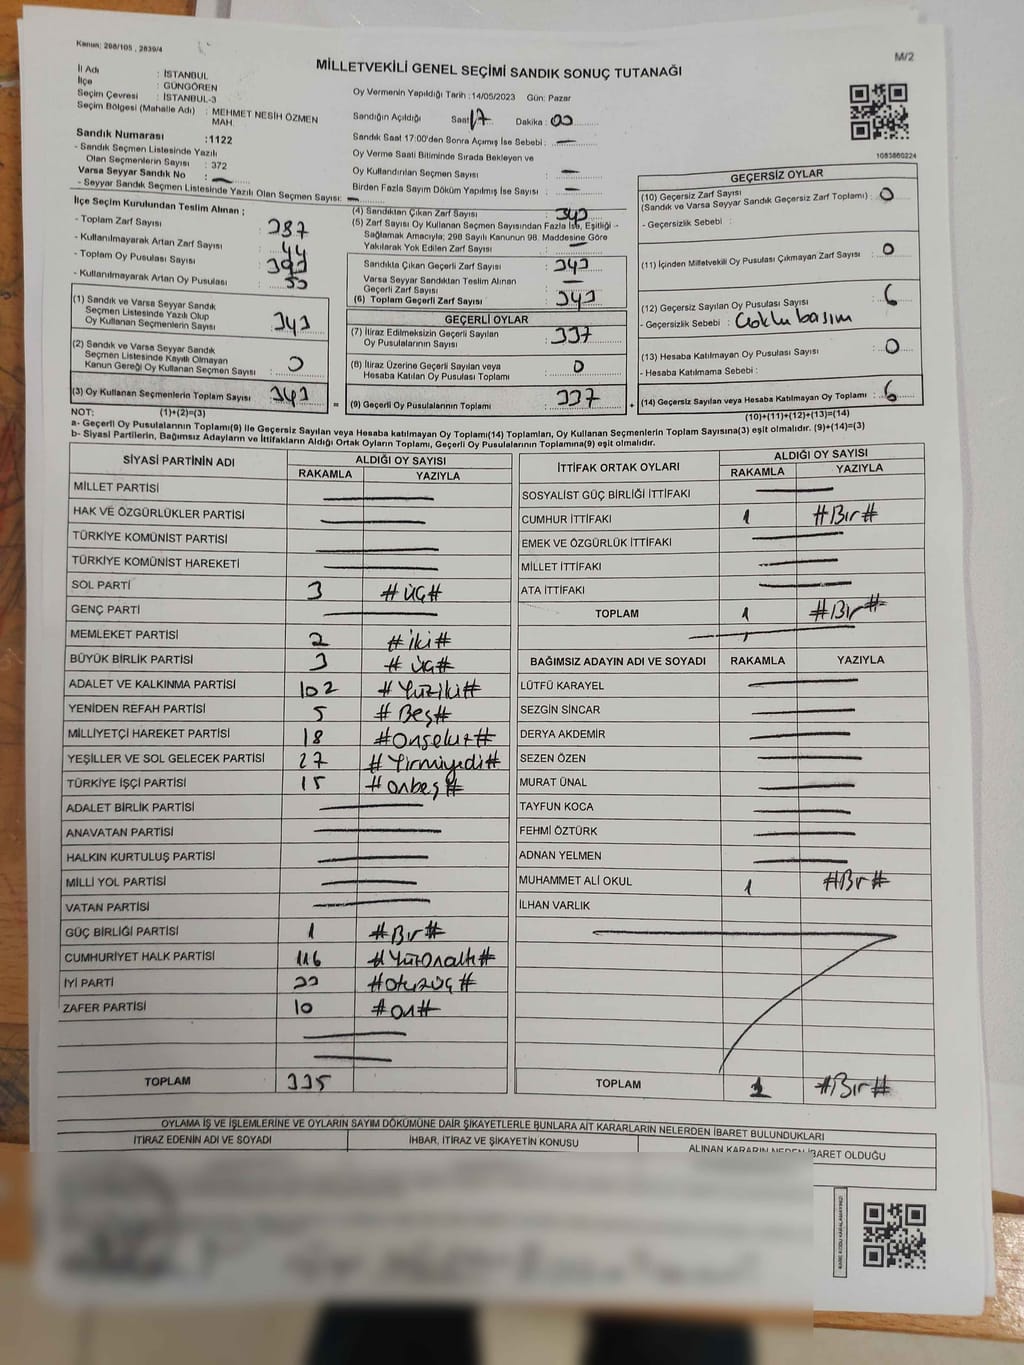 Kanun: 298/105 , 2839/4
M/2
MİLLETVEKİLİ GENEL SEÇİMİ SANDIK SONUÇ TUTANAĞI
İl Adı : İSTANBUL
İlçe : GÜNGÖREN
Seçim Çevresi : İSTANBUL-3
Seçim Bölgesi (Mahalle Adı) : MEHMET NESİH ÖZMEN MAH.
Sandık Numarası :1122
- Sandık Seçmen Listesinde Yazılı
Olan Seçmenlerin Sayısı : 372
Varsa Seyyar Sandık No : —
- Seyyar Sandık Seçmen Listesinde Yazılı Olan Seçmen Sayısı: —
Oy Vermenin Yapıldığı Tarih :14/05/2023 Gün: Pazar
Sandığın Açıldığı Saat: 17 Dakika : 00
Sandık Saat 17:00'den Sonra Açımış İse Sebebi : —
Oy Verme Saati Bitiminde Sırada Bekleyen ve
Oy Kullandırılan Seçmen Sayısı : —
Birden Fazla Sayım Döküm Yapılmış İse Sayısı : —
1083860224
İlçe Seçim Kurulundan Teslim Alınan ;
- Toplam Zarf Sayısı : 387
- Kullanılmayarak Artan Zarf Sayısı : 44
- Toplam Oy Pusulası Sayısı : 393
- Kullanılmayarak Artan Oy Pusulası : 50
(1) Sandık ve Varsa Seyyar Sandık
Seçmen Listesinde Yazılı Olup
Oy Kullanan Seçmenlerin Sayısı : 343
(2) Sandık ve Varsa Seyyar Sandık
Seçmen Listesinde Kayıtlı Olmayan
Kanun Gereği Oy Kullanan Seçmen Sayısı : 0
(3) Oy Kullanan Seçmenlerin Toplam Sayısı : 343
(4) Sandıktan Çıkan Zarf Sayısı : 343
(5) Zarf Sayısı Oy Kullanan Seçmen Sayısından Fazla İse, Eşitliği
Sağlamak Amacıyla; 298 Sayılı Kanunun 98. Maddesine Göre
Yakılarak Yok Edilen Zarf Sayısı : —
Sandıkta Çıkan Geçerli Zarf Sayısı : 343
Varsa Seyyar Sandıktan Teslim Alınan
Geçerli Zarf Sayısı : —
(6) Toplam Geçerli Zarf Sayısı : 343
GEÇERLİ OYLAR
(7) İtiraz Edilmeksizin Geçerli Sayılan
Oy Pusulalarının Sayısı : 337
(8) İtiraz Üzerine Geçerli Sayılan veya
Hesaba Katılan Oy Pusulası Toplamı : 0
= (9) Geçerli Oy Pusulalarının Toplamı : 337
GEÇERSİZ OYLAR
(10) Geçersiz Zarf Sayısı
(Sandık ve Varsa Seyyar Sandık Geçersiz Zarf Toplamı) : 0
- Geçersizlik Sebebi :
(11) İçinden Milletvekili Oy Pusulası Çıkmayan Zarf Sayısı : 0
(12) Geçersiz Sayılan Oy Pusulası Sayısı : 6
- Geçersizlik Sebebi : Çoklu basım
(13) Hesaba Katılmayan Oy Pusulası Sayısı : 0
- Hesaba Katılmama Sebebi :
+ (14) Geçersiz Sayılan veya Hesaba Katılmayan Oy Toplamı : 6
NOT: (1)+(2)=(3)
(10)+(11)+(12)+(13)=(14)
a- Geçerli Oy Pusulalarının Toplamı(9) ile Geçersiz Sayılan veya Hesaba katılmayan Oy Toplamı(14) Toplamları, Oy Kullanan Seçmenlerin Toplam Sayısına(3) eşit olmalıdır. (9)+(14)=(3)
b- Siyasi Partilerin, Bağımsız Adayların ve İttifakların Aldığı Ortak Oyların Toplamı, Geçerli Oy Pusulalarının Toplamına(9) eşit olmalıdır.
SİYASİ PARTİNİN ADI ALDIĞI OY SAYISI
RAKAMLA YAZIYLA
MİLLET PARTİSİ —
HAK VE ÖZGÜRLÜKLER PARTİSİ —
TÜRKİYE KOMÜNİST PARTİSİ —
TÜRKİYE KOMÜNİST HAREKETİ —
SOL PARTİ 3 #üç#
GENÇ PARTİ —
MEMLEKET PARTİSİ 2 #iki#
BÜYÜK BİRLİK PARTİSİ 3 #üç#
ADALET VE KALKINMA PARTİSİ 102 #Yüziki#
YENİDEN REFAH PARTİSİ 5 #Beş#
MİLLİYETÇİ HAREKET PARTİSİ 18 #Onsekiz#
YEŞİLLER VE SOL GELECEK PARTİSİ 27 #Yirmiyedi#
TÜRKİYE İŞÇİ PARTİSİ 15 #onbeş#
ADALET BİRLİK PARTİSİ —
ANAVATAN PARTİSİ —
HALKIN KURTULUŞ PARTİSİ —
MİLLİ YOL PARTİSİ —
VATAN PARTİSİ —
GÜÇ BİRLİĞİ PARTİSİ 1 #Bir#
CUMHURİYET HALK PARTİSİ 116 #YüzOnaltı#
İYİ PARTİ 33 #otuzüç#
ZAFER PARTİSİ 10 #on#
TOPLAM 335
İTTİFAK ORTAK OYLARI ALDIĞI OY SAYISI
RAKAMLA YAZIYLA
SOSYALİST GÜÇ BİRLİĞİ İTTİFAKI —
CUMHUR İTTİFAKI 1 #Bir#
EMEK VE ÖZGÜRLÜK İTTİFAKI —
MİLLET İTTİFAKI —
ATA İTTİFAKI —
TOPLAM 1 #Bir#
BAĞIMSIZ ADAYIN ADI VE SOYADI RAKAMLA YAZIYLA
LÜTFÜ KARAYEL —
SEZGİN SİNCAR —
DERYA AKDEMİR —
SEZEN ÖZEN —
MURAT ÜNAL —
TAYFUN KOCA —
FEHMİ ÖZTÜRK —
ADNAN YELMEN —
MUHAMMET ALİ OKUL 1 #Bir#
İLHAN VARLIK
TOPLAM 1 #Bir#
OYLAMA İŞ VE İŞLEMLERİNE VE OYLARIN SAYIM DÖKÜMÜNE DAİR ŞİKAYETLERLE BUNLARA AİT KARARLARIN NELERDEN İBARET BULUNDUKLARI
İTİRAZ EDENİN ADI VE SOYADI İHBAR, İTİRAZ VE ŞİKAYETİN KONUSU ALINAN KARARIN NEDEN İBARET OLDUĞU